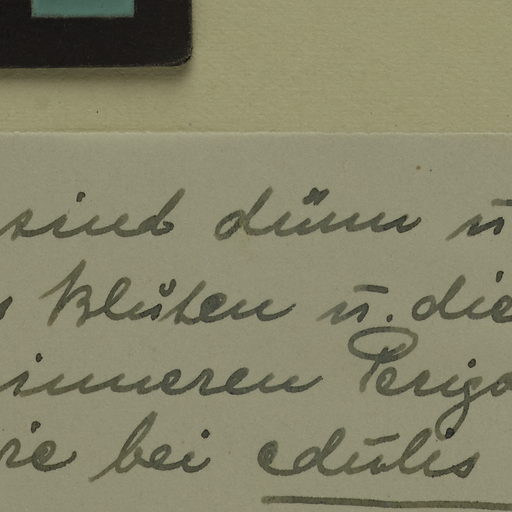 sind dünn u
Blüten u. die
inneren Perigo
wie bei edulis